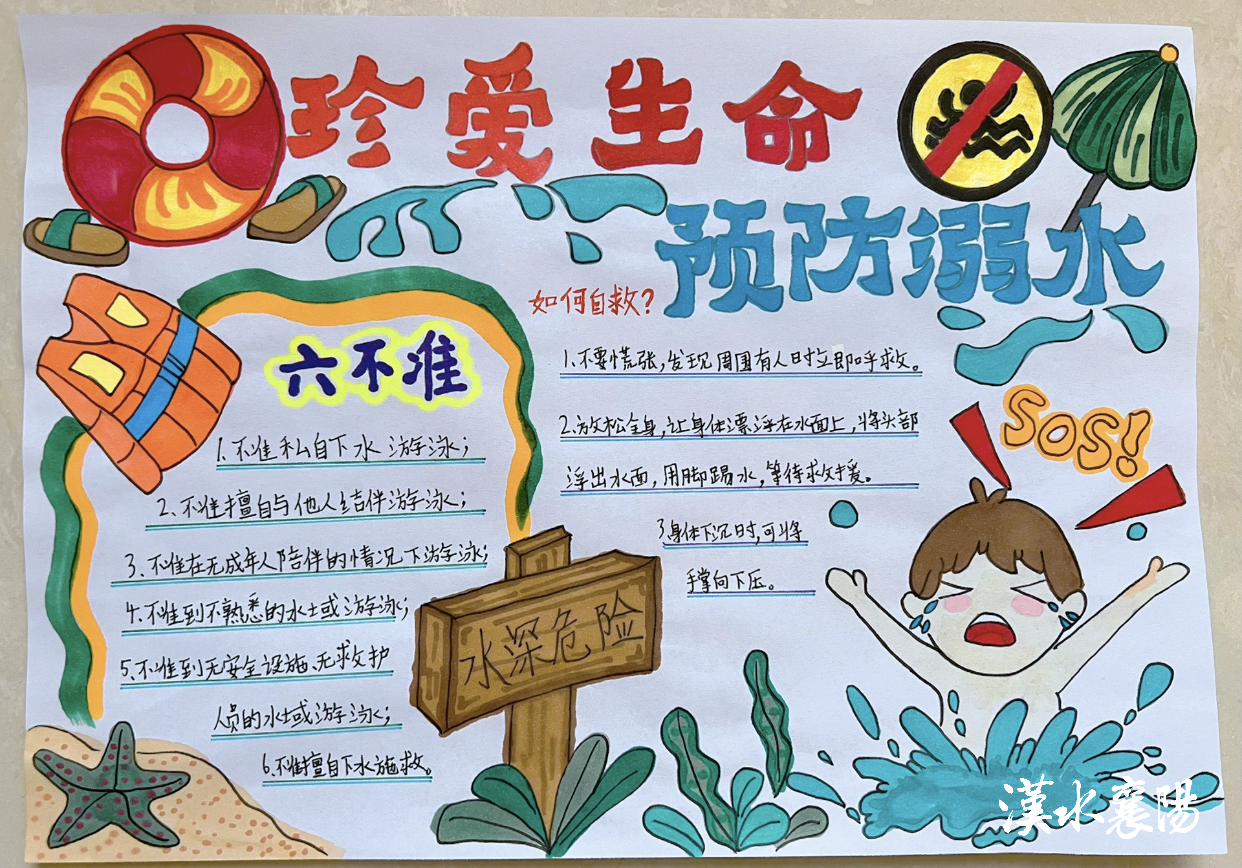 珍爱生命
预防溺水
如何自救?
六不准
1、不准私自下水游泳;
2、不准擅自与他人结伴游泳;
3、不准在无成年人陪伴的情况下游泳;
4、不准到不熟悉的水域游泳;
5、不准到无安全设施、无救护
人员的水域游泳;
6、不准擅自下水施救。
1、不要慌张,发现周围有人时立即呼救。
2、放松全身,让身体漂浮在水面上,将头部
浮出水面,用脚踢水,等待求救援。
3、身体下沉时,可将
手掌向下压。
SOS!
水深危险
漢水襄陽